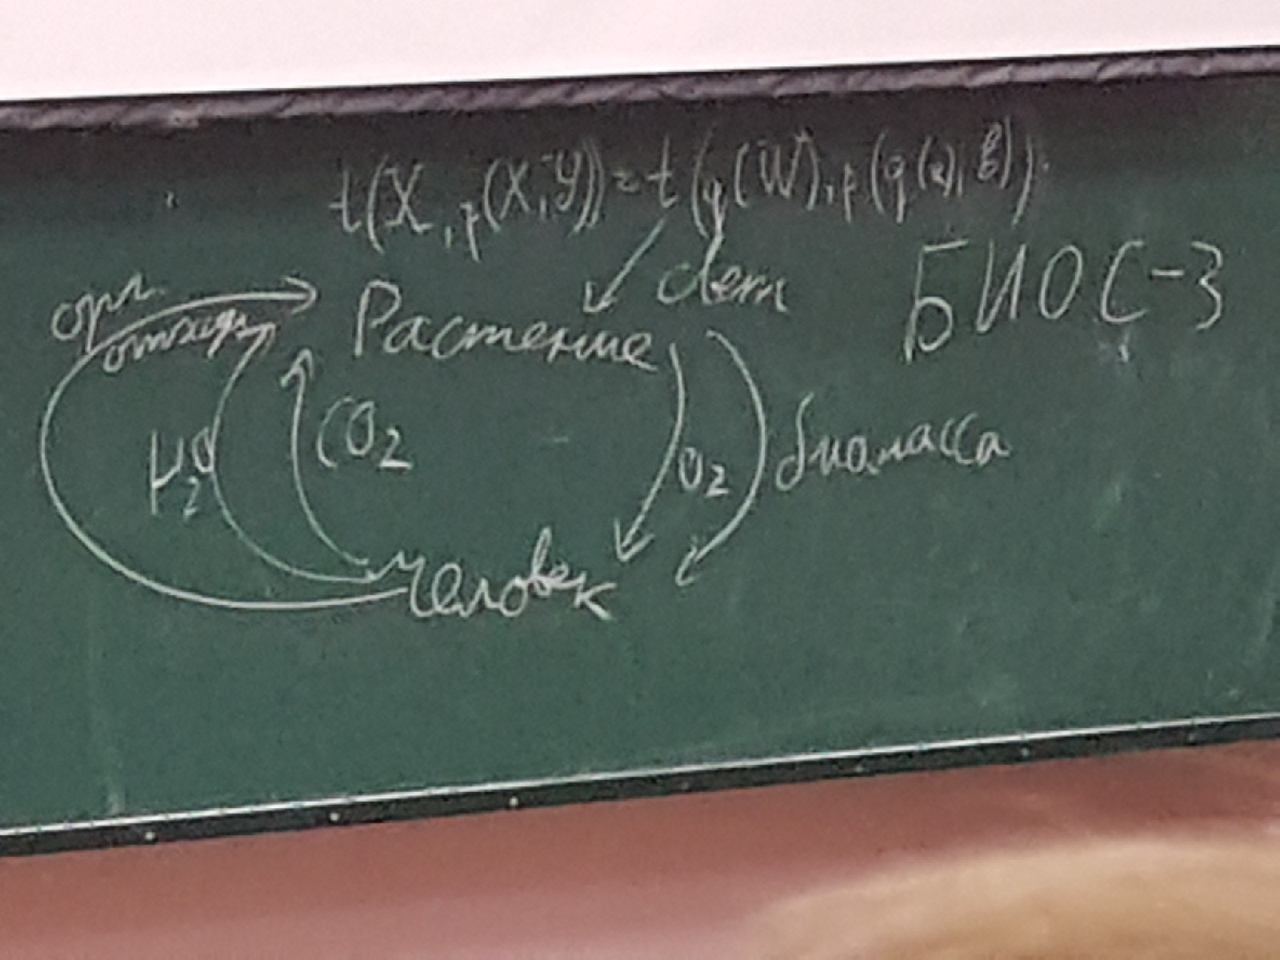 t(X, p(X, Y)) = t(q(W), p(q(a), b)).
свет
БИОС-3
орг. отходы
Растение
H₂O
CO₂
O₂
биомасса
Человек